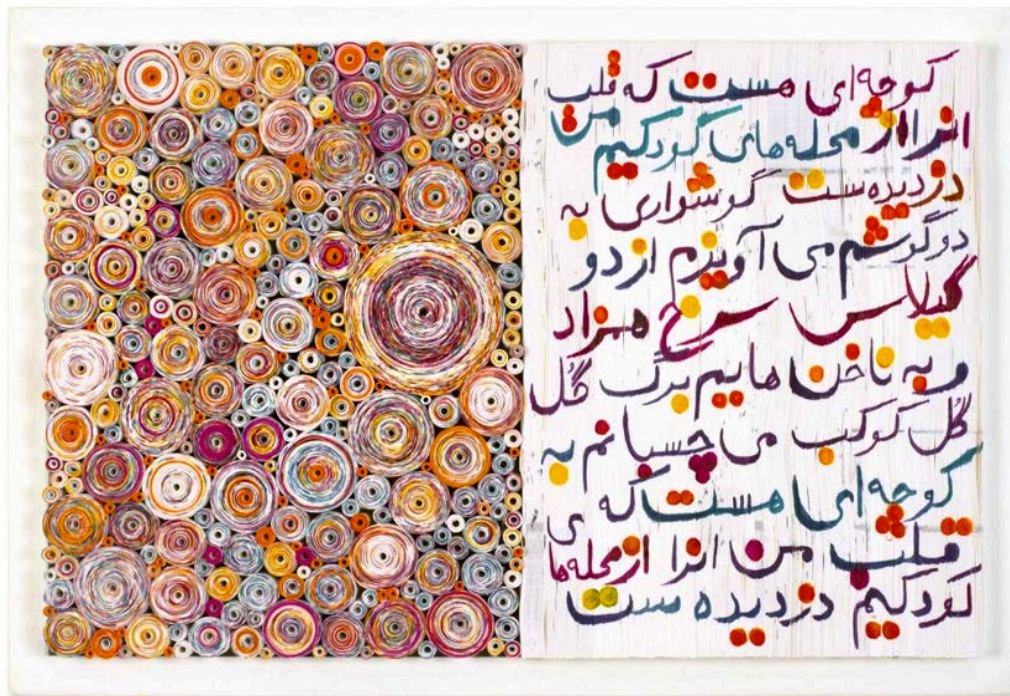 کوچه‌ای هست که قلب
انرا از محله‌های کودکیم من
دزدیده‌ست گوشواری به
دو گوشم می آویزم از دو
گیلاس سرخ همزاد
و به ناخن هایم برگ گل
گل کوکب می چسبانم به
کوچه‌ای هست که ی
قلب من انرا از محله‌ها
کودکیم دزدیده ست